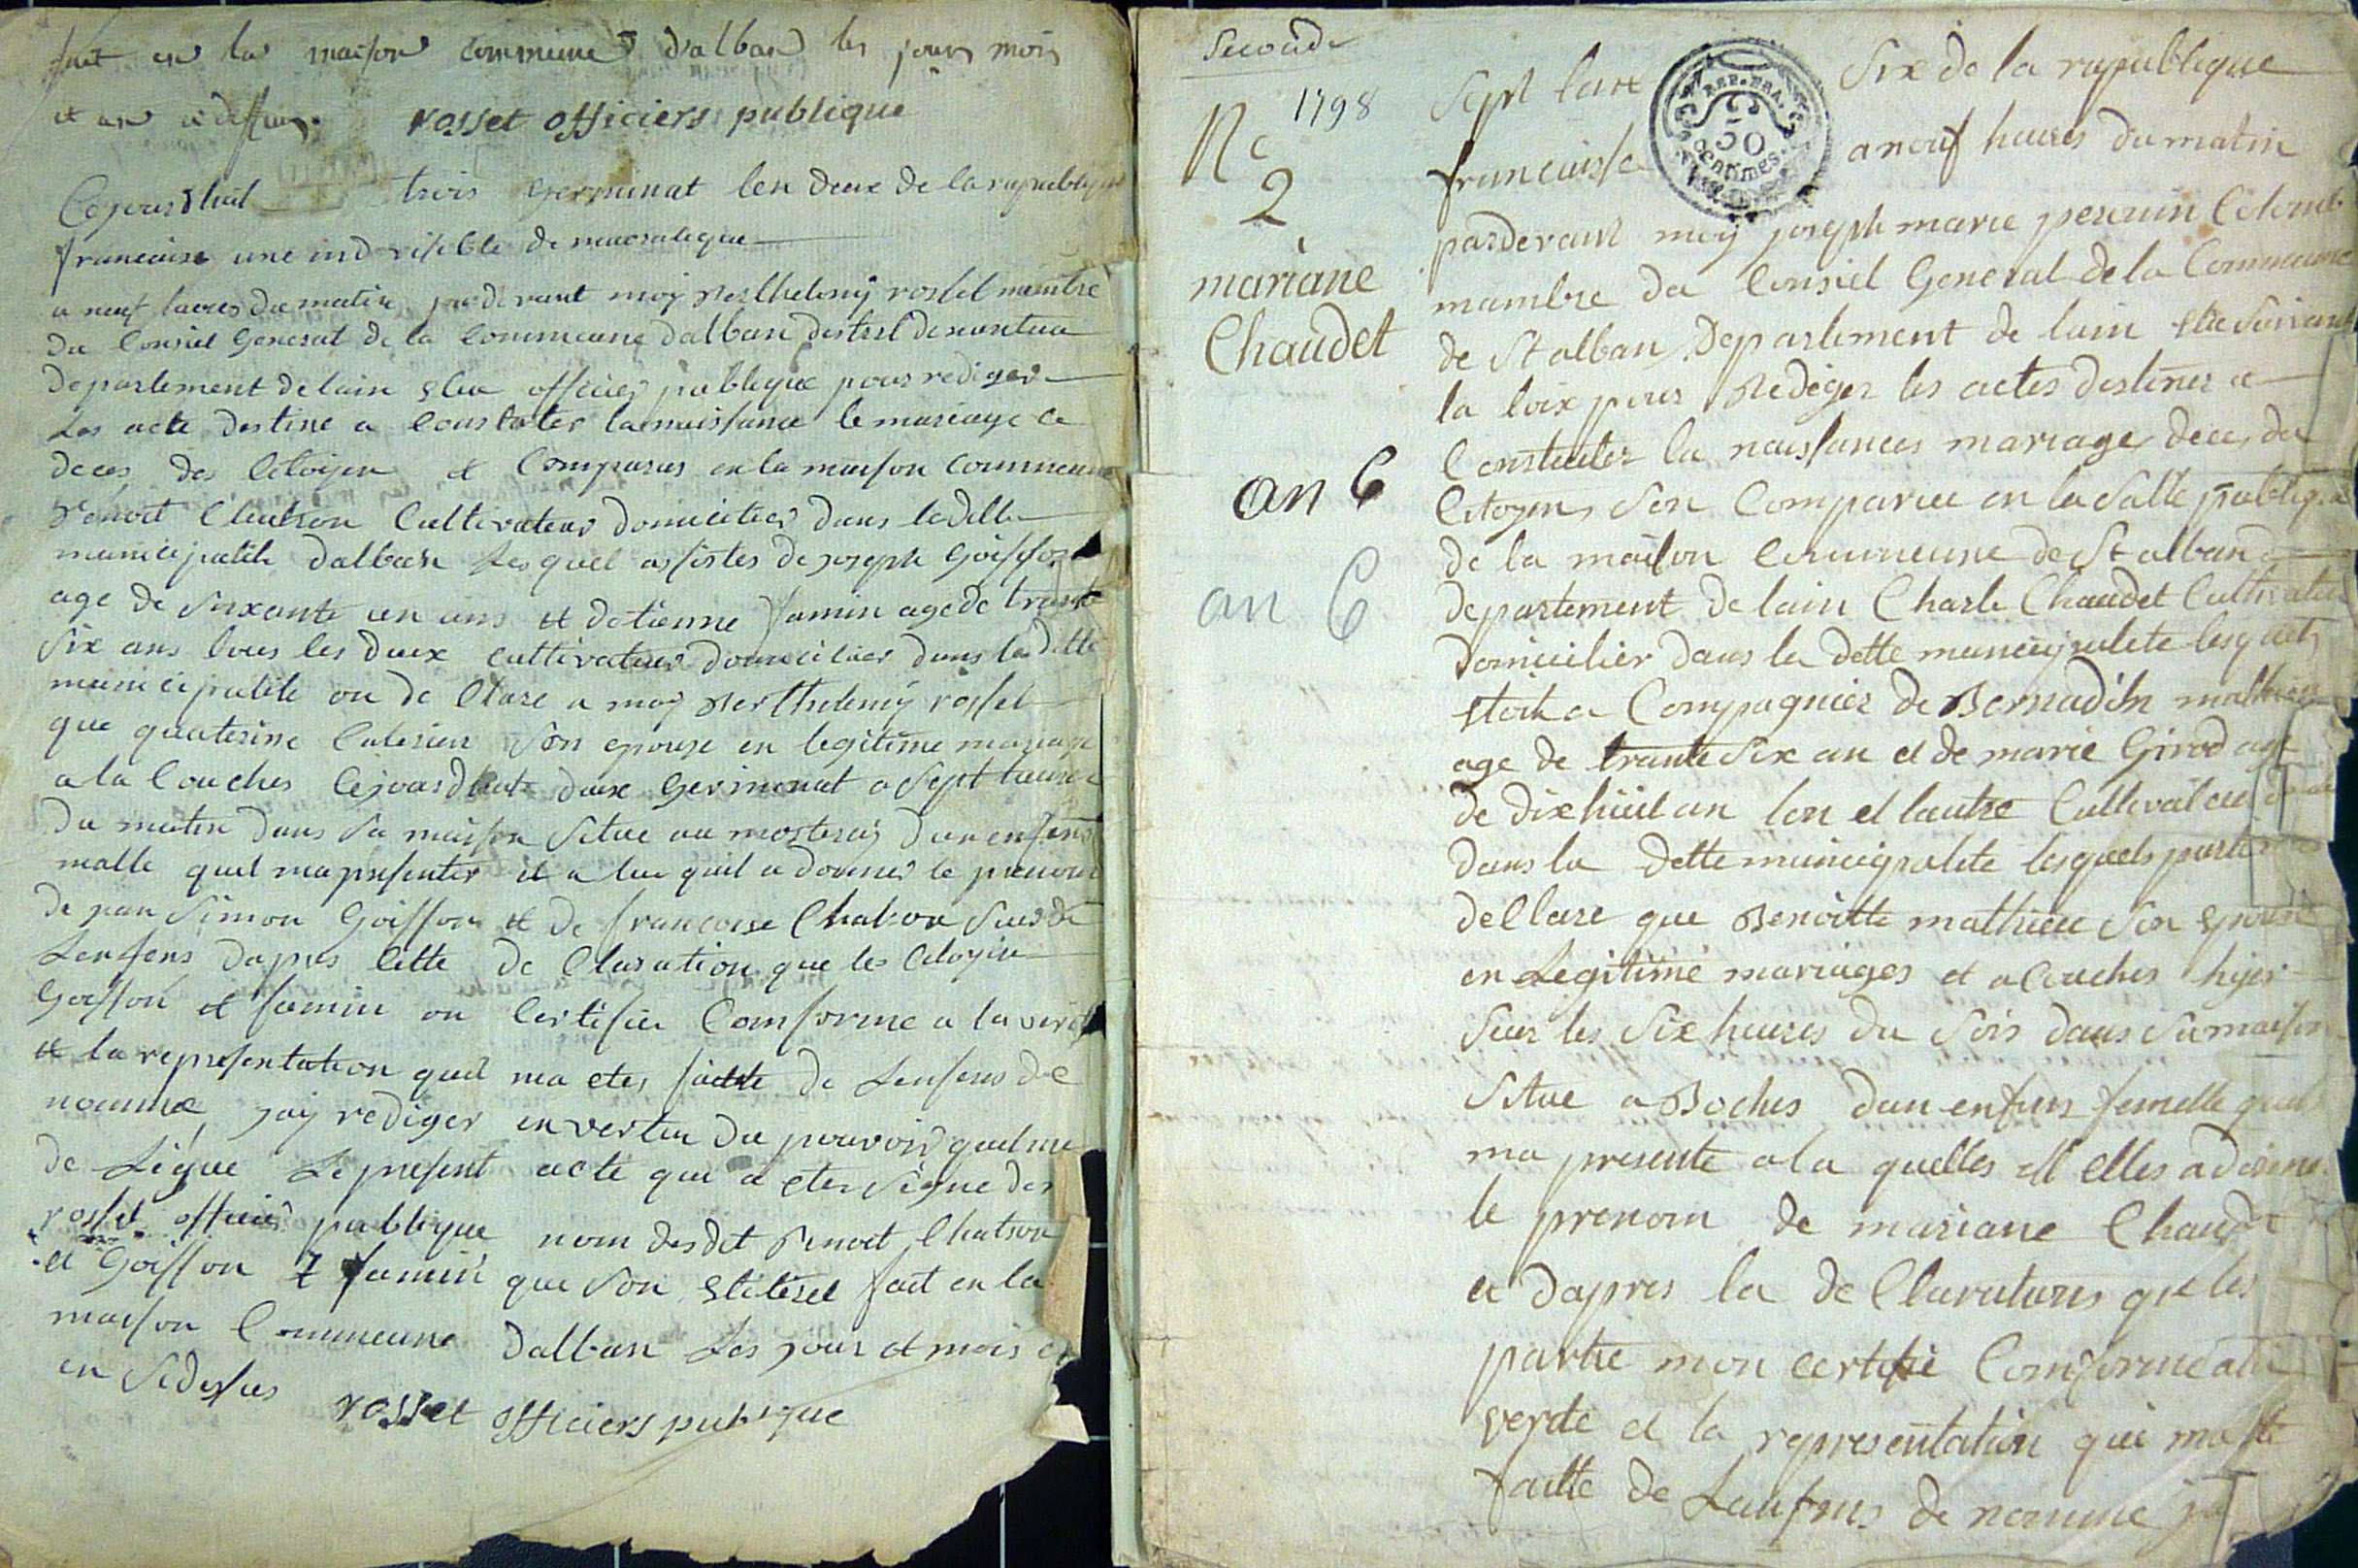 fait en la maison commune d'alban les jours mois
et an
rosset officiers publique
Cejourdhuit trois germinat len deux de la republique
francaise une indivisible de mocratique
a neuf heures du matin par devant moy Berthelemy rosset membre
du Consiel General de la Commeune dalban destrit de nantua
departement de lain elu officier publique pour rediger
Les acte destine a Constater la naissance le mariage ce
deces des Citoyen et Comparus en la maison commeune
Benoit Chatron Cultivateur domicilier dans ledille
municipalite dalban Lesquel assistes de joseph Goiffon
age de soixante un ans et detienne famin age de trante
Six ans tous les deux cultivateur domicilier dans la ditte
municipalite on de Clare a moy Berthelemy rosset
que quaterine son epouse en legitime mariage
a la Couches Cejourdhuit deux Germinat a sept heures
du matin dans sa maison situe au mosterey dun enfens
malle quil ma presenter et a luu quil a donner le prenom
de jean Simon Goiffon et de francoise Chatron
Lenfens dapres Cette de Claration que les Citoyin
Goiffon et famin on Certifier Comforme a la verite
et la representation quil ma etes faitte de Lenfens de
nomme jay rediger en vertu du pouvoir quil me
de Legue Le present acte que a etes signe des
rosset officier publique nom des dit Benoit Chatron
et Goiffon & famin que son fait en la
maison Commeune Dalban Les jour et mois et
en sidessus
rosset officiers publique
Seconde
1798
No
2
mariane
Chaudet
an 6
an 6
REP. FRA.
50
centimes.
Sept Six de la republique
francaisse a neuf heures du matin
parderant moy joseph marie perrin
mambre du Consiel General de la Commeune
de St alban Departement de lain elu Suivant
la loix pour Rediger les actes destiner a
Constater la naissances mariages deces du
Citoyens Son Comparue en la Salle publique
de la maison Commeune de St alban
departement de lain Charle Chaudet Cultivateur
domicilier dans la dette municipalete lesquels
a Compagnier de Bernadin mathieu
age de trante six an et de marie Girod age
de dix huit an lon et lautre Cultivateu
dans la dette municipalete lesquels partie
dellare que Benoitte mathieu Son epouse
en Legitime mariages et a Couches hyer
Sur les Six heures du Soir dans Sa maison
Situe a Boches dun enfens femelle quel
ma presente a la quelles ell elles a donne
le prenom de mariane Chaudt
et dapres la de Claratuons que les
partie mon certifie Comforme a la
verite et la representation qui ma ete
faitte de Lenfens de nomme